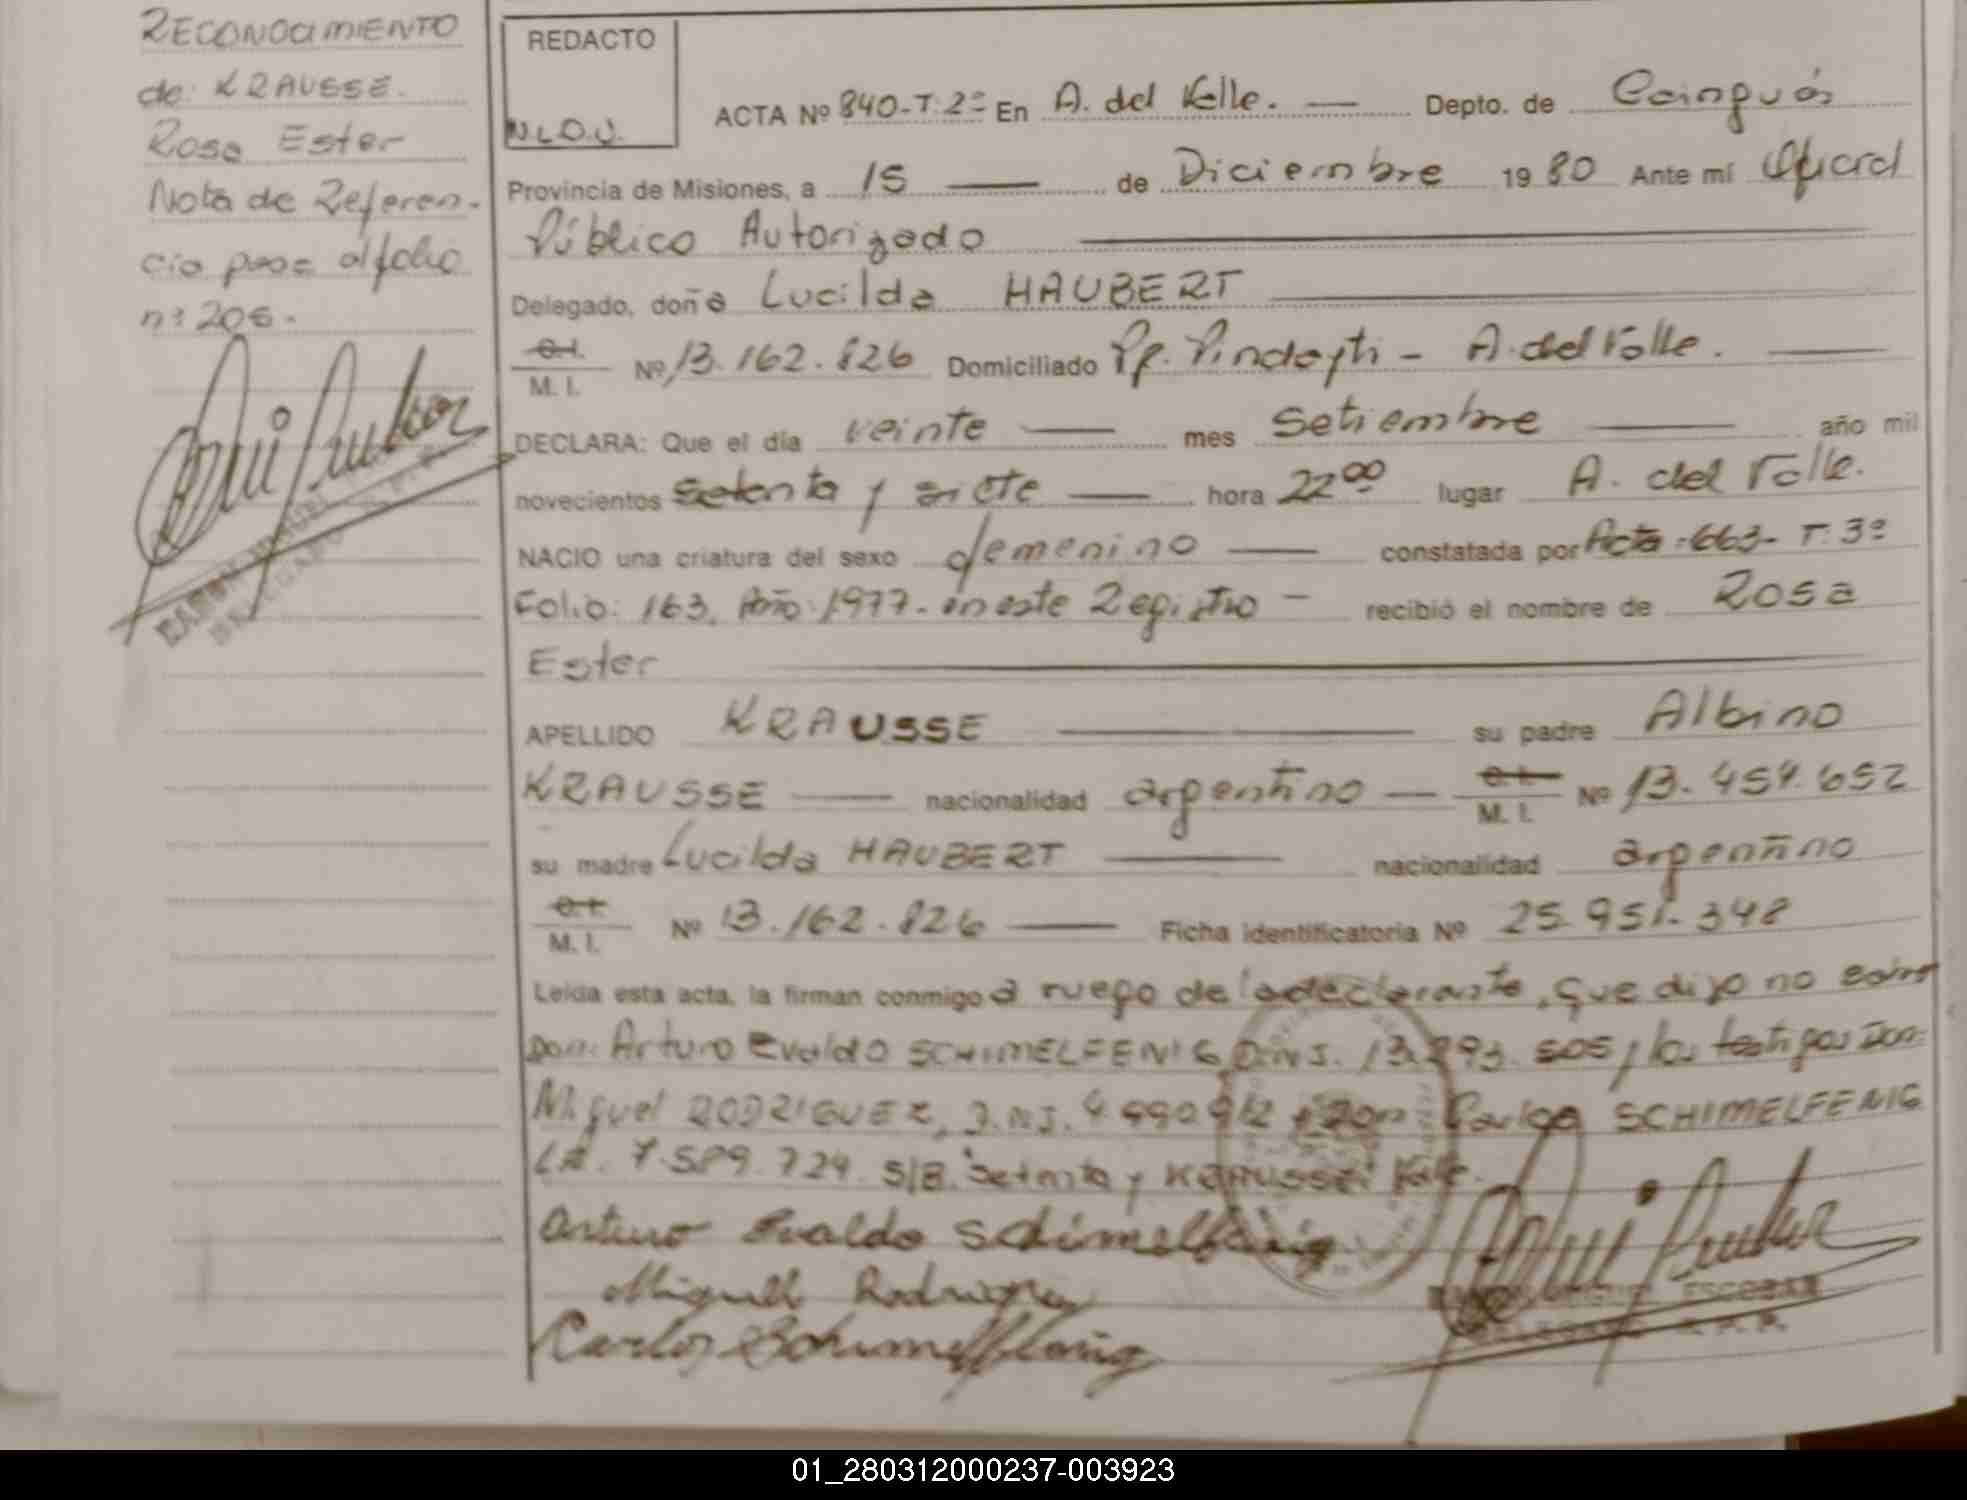 RECONOCIMIENTO
de: KRAUSSE.
Rosa Ester
Nota de Referen-
cia pasa al folio
nº 206.
REDACTO
N.L.O.J.
ACTA Nº 840-T: 2º En A. del Valle. — Depto. de Cainguás
Provincia de Misiones, a 15 — de Diciembre 1980 Ante mí Oficial
Público Autorizado
Delegado, doña Lucilda HAUBERT
C.I. M. I. Nº 13.162.826 Domiciliado Pp. Pindayti - A. del Valle.
DECLARA: Que el día veinte — mes Setiembre — año mil
novecientos setenta y siete — hora 22 00 lugar A. del Valle.
NACIO una criatura del sexo femenino — constatada por Acta: 663- T: 3º
Folio: 163, Año: 1977- en este Registro - recibió el nombre de Rosa
Ester
APELLIDO KRAUSSE — su padre Albino
KRAUSSE — nacionalidad argentino — C.I. M. I. Nº 13.454.652
su madre Lucilda HAUBERT — nacionalidad argentino
C.I. M. I. Nº 13.162.826 — Ficha identificatoria Nº 25.951.348
Leída esta acta, la firman conmigo a ruego de la declarante, que dijo no
Don: Arturo Evaldo SCHIMELFENIG, D.N.I. 13. 505 y los testigos Don:
Miguel RODRIGUEZ, D.N.I. 4.990.912 y Don Carlos SCHIMELFENIG
7.589.724. S/B. "Setenta y KRAUSSE" Vale.
Arturo Evaldo Schimelfenig
Miguel Rodriguez
Carlos Schimelfenig
ESCOBAR
01_280312000237-003923